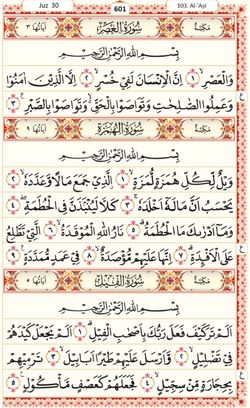 Juz 30
601
103. Al-'Aṣr
مكية سورة العصر آياتها ٣
بسم الله الرحمن الرحيم
وَالْعَصْرِ ١ إِنَّ الْإِنْسَانَ لَفِي خُسْرٍ ٢ إِلَّا الَّذِينَ آمَنُوا
وَعَمِلُوا الصَّالِحَاتِ وَتَوَاصَوْا بِالْحَقِّ وَتَوَاصَوْا بِالصَّبْرِ ٣
مكية سورة الهمزة آياتها ٩
بسم الله الرحمن الرحيم
وَيْلٌ لِكُلِّ هُمَزَةٍ لُمَزَةٍ ١ الَّذِي جَمَعَ مَالًا وَعَدَّدَهُ ٢
يَحْسَبُ أَنَّ مَالَهُ أَخْلَدَهُ ٣ كَلَّا لَيُنْبَذَنَّ فِي الْحُطَمَةِ ٤
وَمَا أَدْرَاكَ مَا الْحُطَمَةُ ٥ نَارُ اللَّهِ الْمُوقَدَةُ ٦ الَّتِي تَطَّلِعُ
عَلَى الْأَفْئِدَةِ ٧ إِنَّهَا عَلَيْهِمْ مُؤْصَدَةٌ ٨ فِي عَمَدٍ مُمَدَّدَةٍ ٩
مكية سورة الفيل آياتها ٥
بسم الله الرحمن الرحيم
أَلَمْ تَرَ كَيْفَ فَعَلَ رَبُّكَ بِأَصْحَابِ الْفِيلِ ١ أَلَمْ يَجْعَلْ كَيْدَهُمْ
فِي تَضْلِيلٍ ٢ وَأَرْسَلَ عَلَيْهِمْ طَيْرًا أَبَابِيلَ ٣ تَرْمِيهِمْ
بِحِجَارَةٍ مِنْ سِجِّيلٍ ٤ فَجَعَلَهُمْ كَعَصْفٍ مَأْكُولٍ ٥